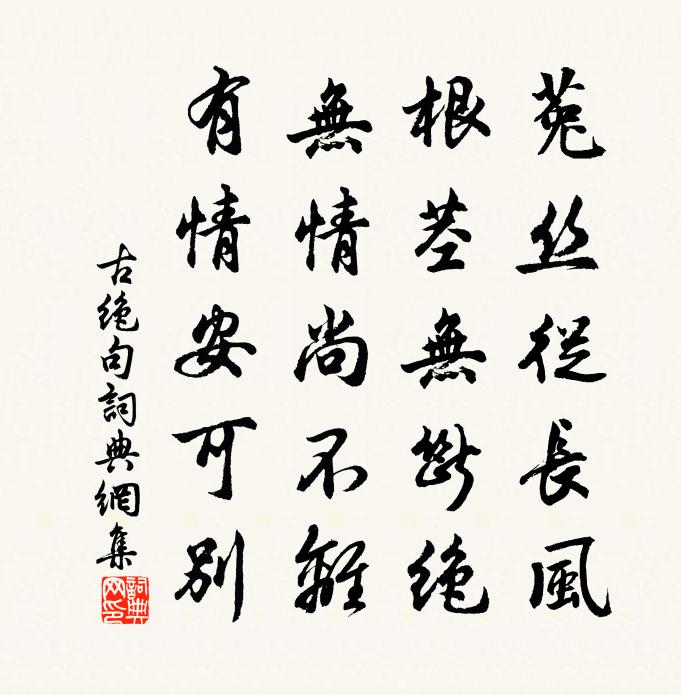 菟丝從長風
根莖無斷絕
無情尚不離
有情安可別
古絕句詞典網集
詞典网印